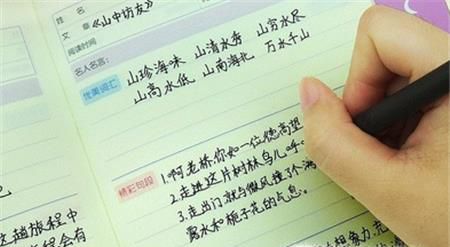 姓
文 章《山中访友》
阅读时间
名人名言:
优美词汇 山珍海味 山清水秀 山穷水尽
山高水低 山南海北 万水千山
精彩句段 1.啊老桥你如一位德高望
2.走进这片树林鸟儿呼
3.走出门就与微风撞了个满
露水和栀子花的气息。
这趟旅程中